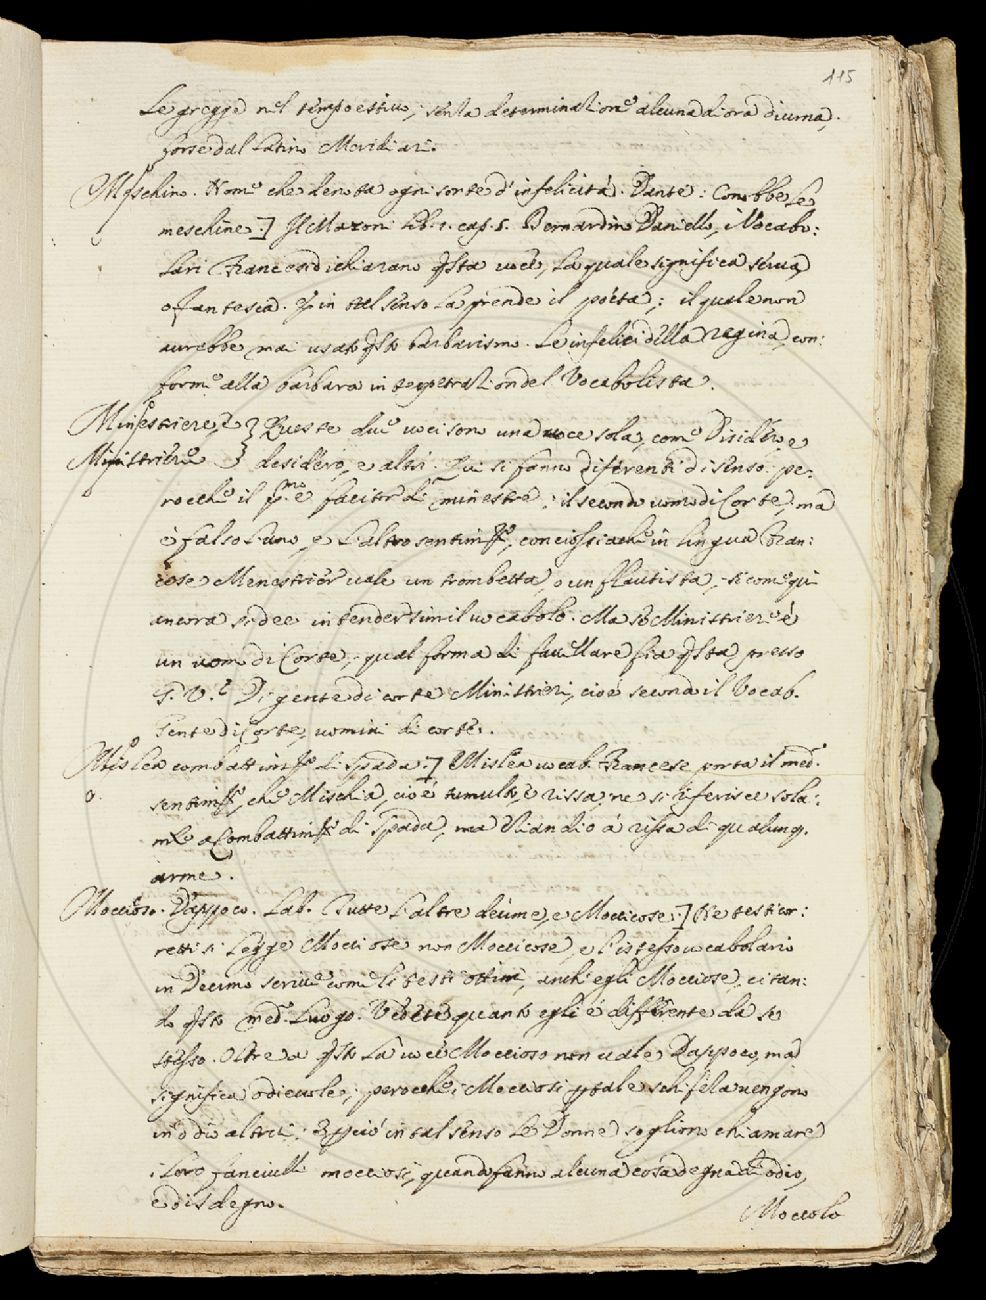 115
Le gregge nel tempo estivo, senza determinatione alcuna di ora diurna,
forse dal Latino Meridiari.
Meschino. Nome che denota ogni sorte d'infelicità. Dante: Conobbe le
meschine.] Il Mazoni lib. 1. cap. 5. Bernardino Daniello, i Vocabo:
lari Francesi dichiarano qsta voce, la quale significa serva,
o fantesca. E in tal senso la prende il poeta; il quale non
avrebbe mai usato qsto barbarismo. Le infelici della regina, con:
forme alla barbara interpetration del Vocabolista.
Minestriere, e } Queste due voci sono una voce sola, come Disidero, e
Ministriere } desidero, e altri. Qui si fanno diferenti di senso: pe:
rocche il pmo e facitor di minestre; il secondo uomo di Corte, ma
è falso l'uno, e l'altro sentimto, conciossiache in lingua Fran:
cese Menestrier vale un trombetta, o un flautista, si come qui
ancora si dee intender simil vocabolo. Ma se Ministriere è
un uomo di Corte, qual forma di favellare fia qsta, presso
G. V. Di gente di corte Ministrieri, cioè secondo il Vocab.
Gente di Corte, uomini di corte.
Mislea combattimto di spada.] Mislea vocab. Francese porta il med.
o. sentimto, che Mischia, cioè tumulto, e rissa, ne si riferisce sola:
mte a Combattimti di spada, ma eziandio à rissa di qualunq.
arme.
Moccioso. Dappoco. Lab. Tutte l'altre decime, e Moccicose.] Ne testi cor:
retti si legge Mocciose non Moccicose, e l'istesso vocabolario
in Decimo scrive come li testi ottimi, anch'egli Mocciose, citan:
do qsto med. luogo. Vedete quanto egli è differente da se
stesso. Oltre a qsto la voce Moccioso non vale Dappoco, ma
significa odievole; perocche i Mocciosi p tale schifela vengono
in odio altrui; E pciò in tal senso le Donne sogliono chiamare
i loro fanciulli mocciosi, quando fanno alcuna cosa degna di odio,
e di sdegno.
Moccolo